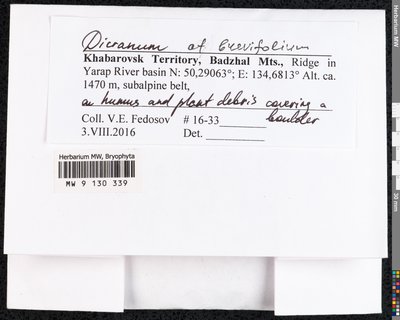 Dicranum af brevifolium
Khabarovsk Territory, Badzhal Mts., Ridge in
Yarap River basin N: 50,29063°; E: 134,6813° Alt. ca.
1470 m, subalpine belt,
on humus and plant debris covering a
Coll. V.E. Fedosov # 16-33 boulder
3.VIII.2016 Det.
Herbarium MW, Bryophyta
MW 9 130 339
Herbarium MW
30 mm